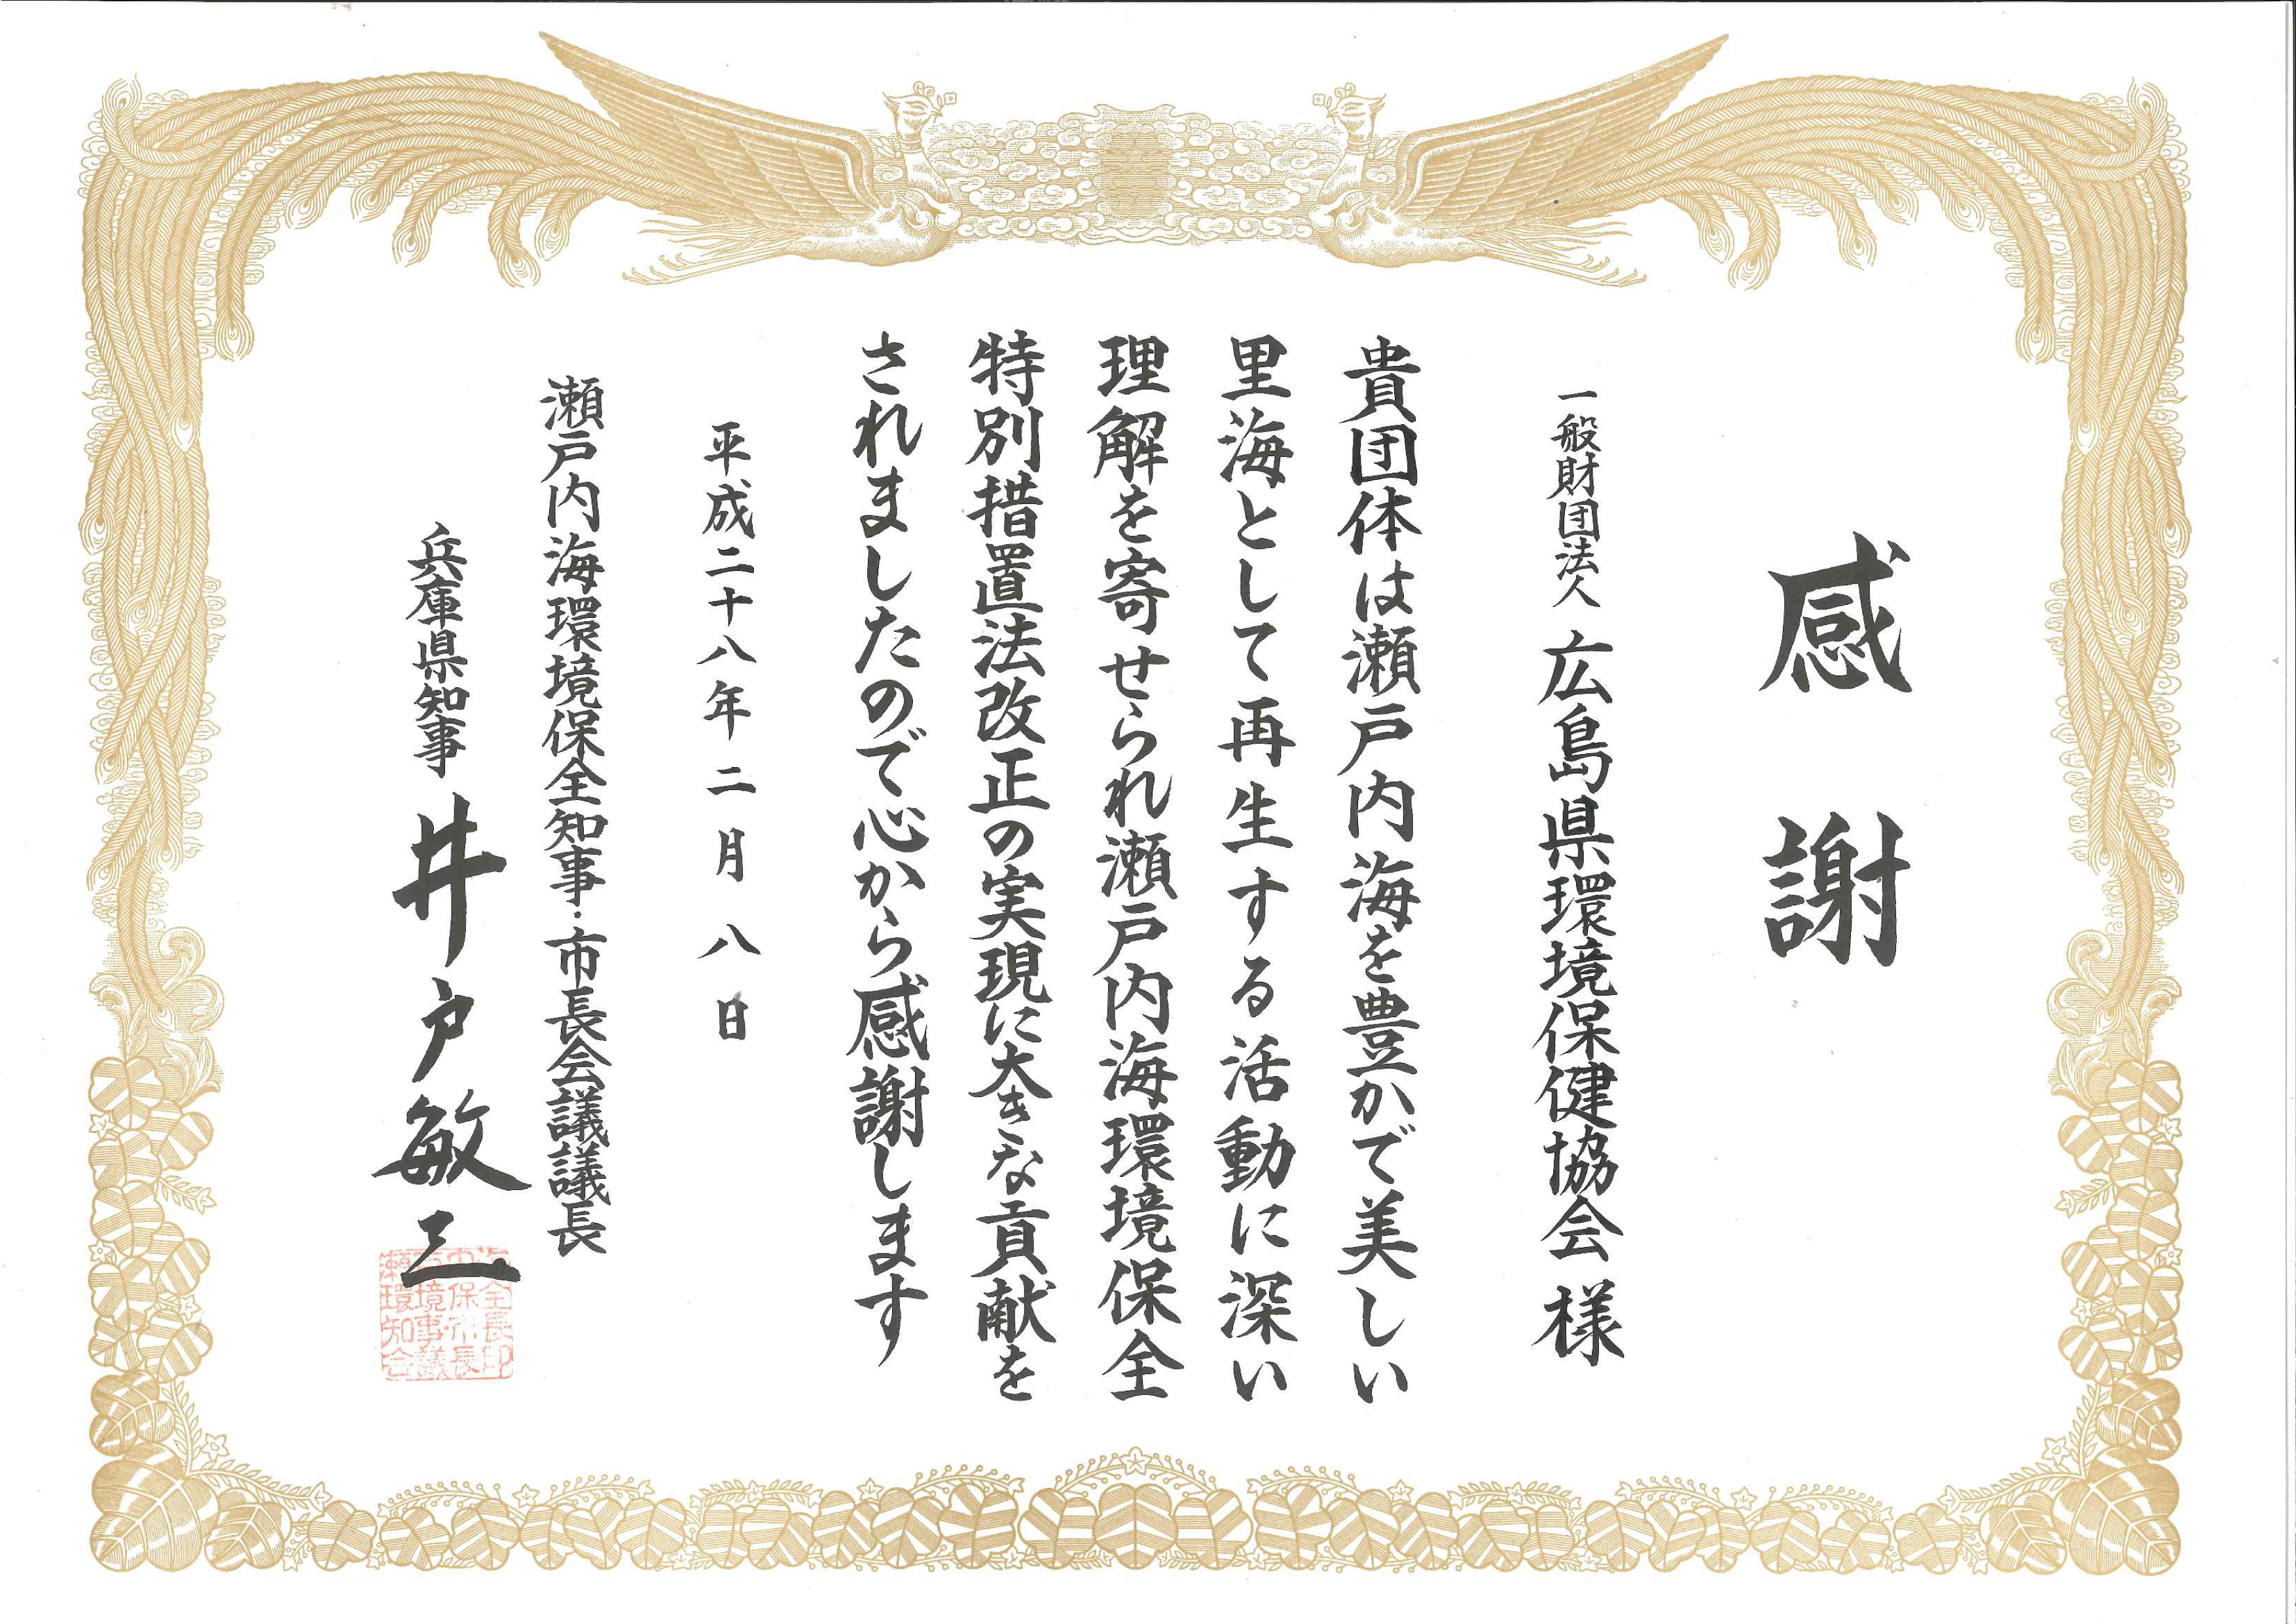 感謝
一般財団法人 広島県環境保健協会 様
貴団体は瀬戸内海を豊かで美しい
里海として再生する活動に深い
理解を寄せられ瀬戸内海環境保全
特別措置法改正の実現に大きな貢献を
されましたので心から感謝します
平成二十八年二月八日
瀬戸内海環境保全知事・市長会議議長
兵庫県知事 井戸敏三